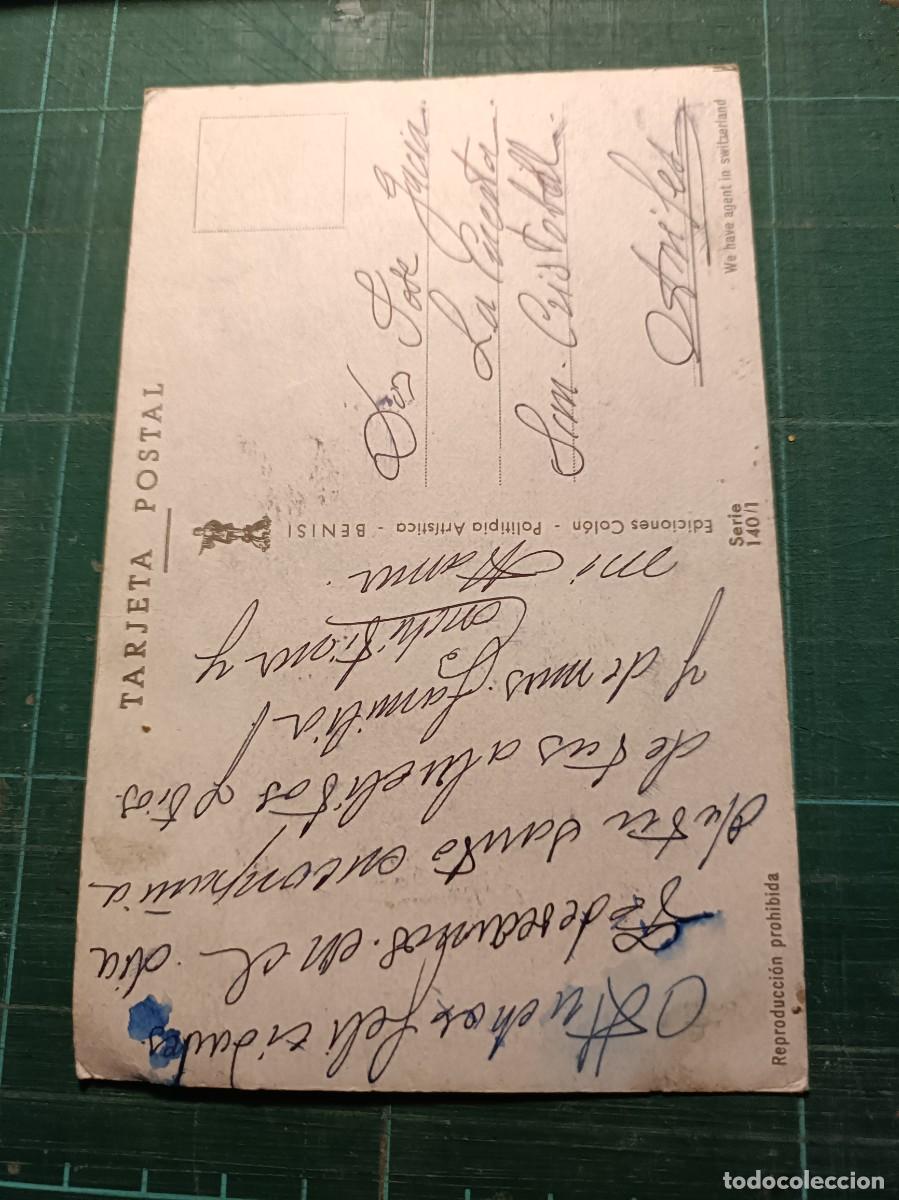 TARJETA POSTAL
Muchas felicidades
Te deseamos en el dia
de tu santo en compañia
de tus abuelitos y tios.
y demas familia
Conchi Tiana y
mi Mama.
Don Jose
La Puerta
San Cristobal
Reproducción prohibida
Ediciones Colón - Politipia Artística - BENISI
Serie
140/1
We have agent in switzerland
todocoleccion